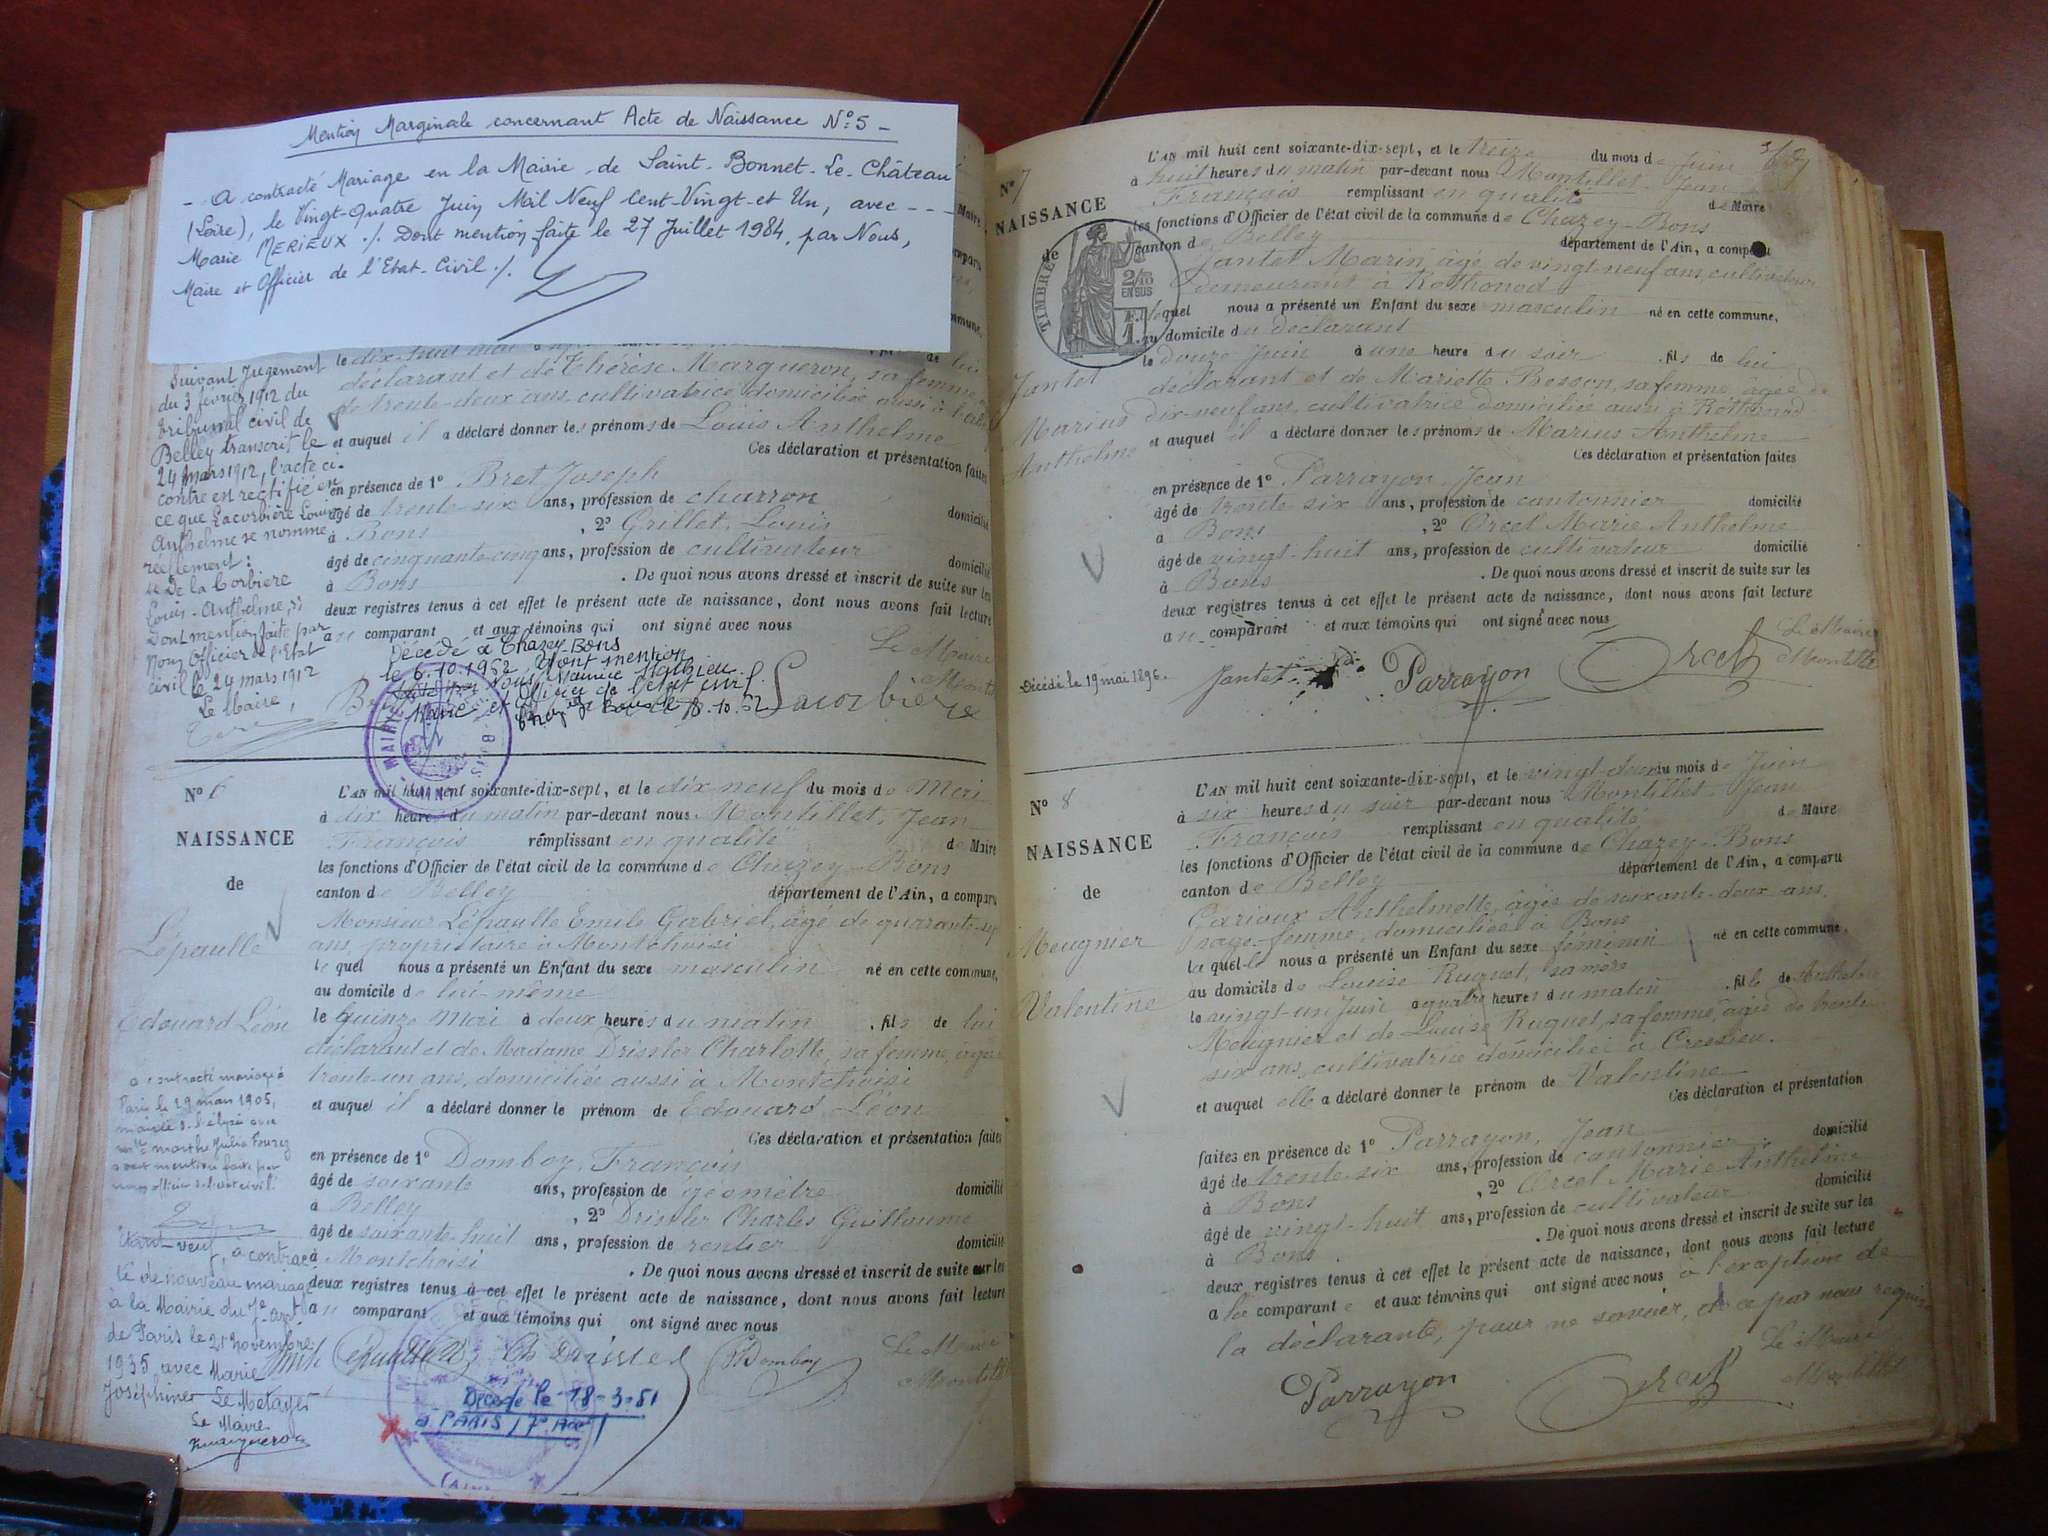 Mention Marginale concernant Acte de Naissance N° 5 -
- A contracté Mariage en la Mairie de Saint-Bonnet-Le-Château
(Loire), le Vingt-Quatre Juin Mil Neuf Cent-Vingt-et Un, avec - - -
Marie MERIEUX ./. Dont mention faite le 27 Juillet 1984, par Nous,
Maire et Officier de l'Etat-Civil ./.
Suivant Jugement
du 3 février 1912 du
tribunal civil de
Belley transcrit le
24 mars 1912, l'acte ci-
contre en rectifié en
ce que Lacorbière Louis
Anthelme se nomme
réellement :
"De la Corbière
Louis-Anthelme,"
Dont mention faite par
Nous Officier de l'Etat
civil le 24 mars 1912
Le Maire,
le dix-huit mai
déclarant et de Thérèse Marqueron, sa femme,
de trente-deux ans, cultivatrice, domiciliée aussi à
et auquel il a déclaré donner les prénoms de Louis Anthelme
Ces déclaration et présentation faites
en présence de 1° Bret Joseph
âgé de trente-six ans, profession de charron domicilié
à Bons , 2° Grillet, Louis
âgé de cinquante-cinq ans, profession de cultivateur domicilié
à Bons . De quoi nous avons dressé et inscrit de suite sur les
deux registres tenus à cet effet le présent acte de naissance, dont nous avons fait lecture
au comparant et aux témoins qui ont signé avec nous
Le Maire
Décédé à Chazey-Bons
le 6.10.1962 Dont mention
Maire et Officier de l'état civil
18.10.62
Lacorbière
N° 6
NAISSANCE
de
Lépaulle
Edouard Léon
L'AN mil huit cent soixante-dix-sept, et le dix neuf du mois de Mai
à dix heures du matin par-devant nous Montillet, Jean
François remplissant en qualité de Maire
les fonctions d'Officier de l'état civil de la commune de Chazey-Bons
canton de Belley département de l'Ain, a comparu
Monsieur Lépaulle Emile Gabriel, âgé de quarante-sept
ans, propriétaire à Montchoisi
le quel nous a présenté un Enfant du sexe masculin né en cette commune,
au domicile de lui-même
le quinze Mai à deux heures du matin , fils de lui
déclarant et de Madame Drissler Charlotte, sa femme, âgée
trente-un ans, domiciliée aussi à Montchoisi
et auquel il a déclaré donner le prénom de Edouard Léon
Ces déclaration et présentation faites
en présence de 1° Domboy, François
âgé de soixante ans, profession de géomètre domicilié
à Belley , 2° Drissler Charles Guillaume
âgé de soixante-huit ans, profession de rentier domicilié
à Montchoisi . De quoi nous avons dressé et inscrit de suite sur les
deux registres tenus à cet effet le présent acte de naissance, dont nous avons fait lecture
au comparant et aux témoins qui ont signé avec nous
Le Maire
Ch Drissler
Domboy
Décédé le 18-3-51
à PARIS (7e Arr)
a contracté mariage à
Paris le 29 mars 1905,
mairie de l'élysée avec
Mlle marthe Julia Fourez
dont mention faite par
nous officier de l'état civil
Etant veuf, a contrac
té de nouveau mariage
à la Mairie du 7e arrt
de Paris le 21 novembre
1935 avec Marie
Joséphine Le Metayer
Le Maire
N° 7
NAISSANCE
de
TIMBRE
2/10 EN SUS
Jantet
Marius
Anthelme
L'AN mil huit cent soixante-dix-sept, et le treize du mois de Juin
à huit heures du matin par-devant nous Montillet Jean
François remplissant en qualité de Maire
les fonctions d'Officier de l'état civil de la commune de Chazey-Bons
canton de Belley département de l'Ain, a comparu
Jantet Marin, âgé de vingt-neuf ans, cultivateur
demeurant à Rothonod
lequel nous a présenté un Enfant du sexe masculin né en cette commune,
au domicile du déclarant
le douze Juin à une heure du soir , fils de lui
déclarant et de Mariette Besson, sa femme, âgée de
dix-neuf ans, cultivatrice domiciliée aussi à Rothonod
et auquel il a déclaré donner les prénoms de Marius Anthelme
Ces déclaration et présentation faites
en présence de 1° Parrayon, Jean
âgé de trente six ans, profession de cantonnier domicilié
à Bons , 2° Orcel Marie Anthelme
âgé de vingt-huit ans, profession de cultivateur domicilié
à Bons . De quoi nous avons dressé et inscrit de suite sur les
deux registres tenus à cet effet le présent acte de naissance, dont nous avons fait lecture
au comparant et aux témoins qui ont signé avec nous
Le Maire
Décédé le 19 mai 1896.
Jantet Parrayon Orcel Montillet
N° 8
NAISSANCE
de
Meugnier
Valentine
L'AN mil huit cent soixante-dix-sept, et le vingt-deux du mois de Juin
à six heures du soir par-devant nous Montillet Jean
François remplissant en qualité de Maire
les fonctions d'Officier de l'état civil de la commune de Chazey-Bons
canton de Belley département de l'Ain, a comparu
Garioux Anthelmette, âgée de soixante-deux ans,
sage-femme, domiciliée à Bons
laquelle nous a présenté un Enfant du sexe féminin né en cette commune,
au domicile de Louise Ruguet, sa mère
le vingt-un Juin à quatre heures du matin , fille de Anthelme
Meugnier et de Louise Ruguet, sa femme, âgée de trente
six ans, cultivatrice domiciliée à Cressieu.
et auquel elle a déclaré donner le prénom de Valentine
Ces déclaration et présentation
faites en présence de 1° Parrayon, Jean
âgé de trente six ans, profession de cantonnier domicilié
à Bons , 2° Orcel Marie Anthelme
âgé de vingt-huit ans, profession de cultivateur domicilié
à Bons . De quoi nous avons dressé et inscrit de suite sur les
deux registres tenus à cet effet le présent acte de naissance, dont nous avons fait lecture
à la comparante et aux témoins qui ont signé avec nous à l'exception de
la déclarante, pour ne savoir, de ce par nous requise
Le Maire
Parrayon Orcel Montillet